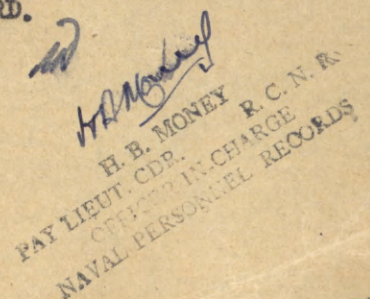 RD.
H. B. MONEY
PAY LIEUT. CDR. R. C. N. R.
OFFICER IN CHARGE
NAVAL PERSONNEL RECORDS